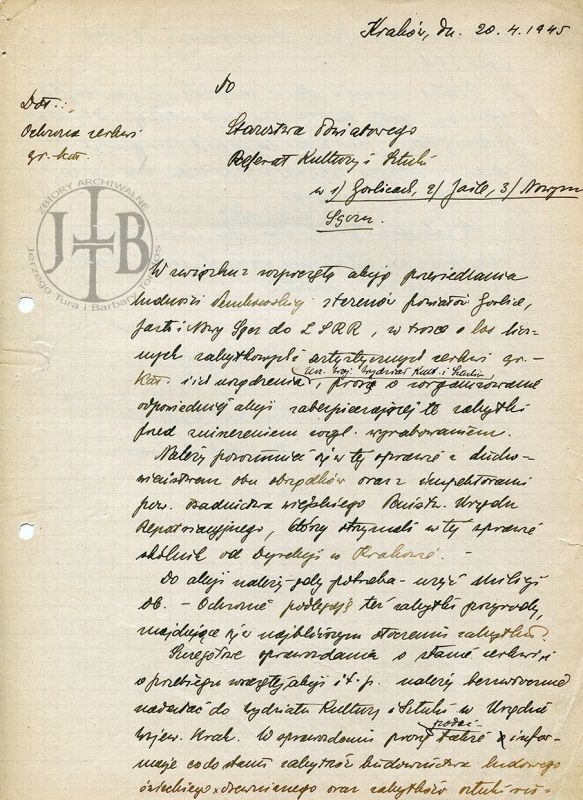 Kraków, dn. 20.4.1945
Do
Dot.:
Ochrona cerkwi
gr. kat.
Starostwa Powiatowego
Referat Kultury i Sztuki
w 1/ Gorlicach, 2/ Jaśle, 3/ Nowym
Sączu.
ZBIORY ARCHIWALNE
JTB
Jerzego Tura i Barbary
W związku z rozpoczętą akcją przesiedlania
ludności łemkowskiej z terenów powiatów Gorlice,
Jasło i Nowy Sącz do ZSRR, w trosce o los licz-
nych zabytkowych i artystycznych cerkwi gr.-
Urz. Woj. Wydział Kult. i Sztuki
kat. i ich urządzenia, proszę o zorganizowanie
odpowiedniej akcji zabezpieczającej te zabytki
przed zniszczeniem wzgl. wyrabowaniem.
Należy porozumieć się w tej sprawie z ducho-
wieństwem obu obrządków oraz z inspektorami
pow. osadnictwa wiejskiego Państw. Urzędu
Repatriacyjnego, którzy otrzymali w tej sprawie
okólnik od Dyrekcji w Krakowie. -
Do akcji należy - gdy potrzeba - użyć Milicji
Ob. - Ochronie podlegają też zabytki przyrody,
znajdujące się w najbliższym otoczeniu zabytków.
Szczegółowe sprawozdania o stanie cerkwi i
o przebiegu wszczętej akcji i t. p. należy bezzwłocznie
nadsyłać do Wydziału Kultury i Sztuki w Urzędzie
podać
Wojew. Krak. W sprawozdaniu proszę także infor-
macje co do stanu zabytków budownictwa ludowego
świeckiego drewnianego oraz zabytków sztuki